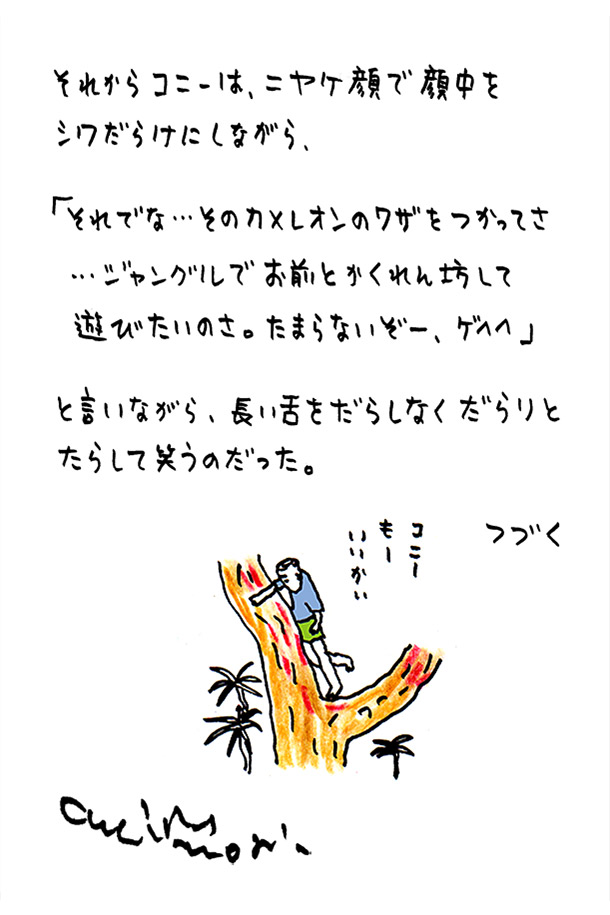 それからコニーは、ニヤケ顔で顔中を
シワだらけにしながら、
「それでな…そのカメレオンのワザをつかってさ
…ジャングルでお前とかくれん坊して
遊びたいのさ。たまらないぞー、ゲヘヘ」
と言いながら、長い舌をだらしなくだらりと
たらして笑うのだった。
つづく
コニー
もー
いいかい